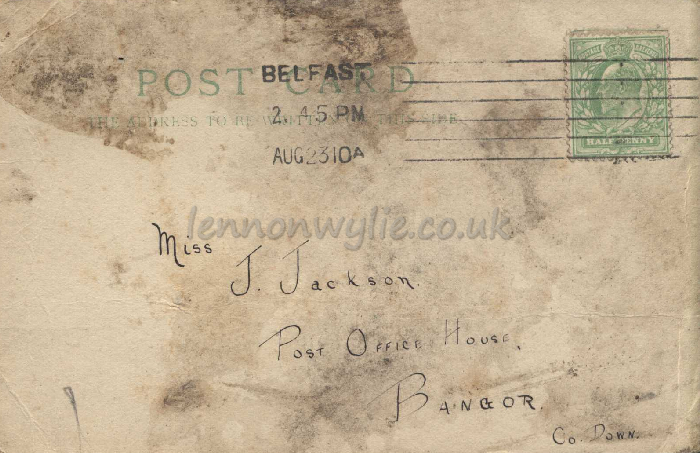 POST CARD
THE ADDRESS TO BE WRITTEN ON THIS SIDE.
BELFAST
2. 45 PM
AUG 23 10 A
HALFPENNY
lennonwylie.co.uk
Miss
J. Jackson.
Post Office House,
Bangor.
Co. Down.